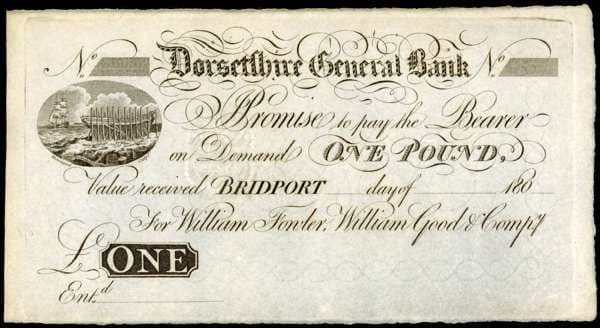 No. Dorsetshire General Bank No.
I Promise to pay the Bearer
on Demand ONE POUND,
Value received BRIDPORT day of 180
For William Fowler, William Good & Compy
£ ONE
Ent.d